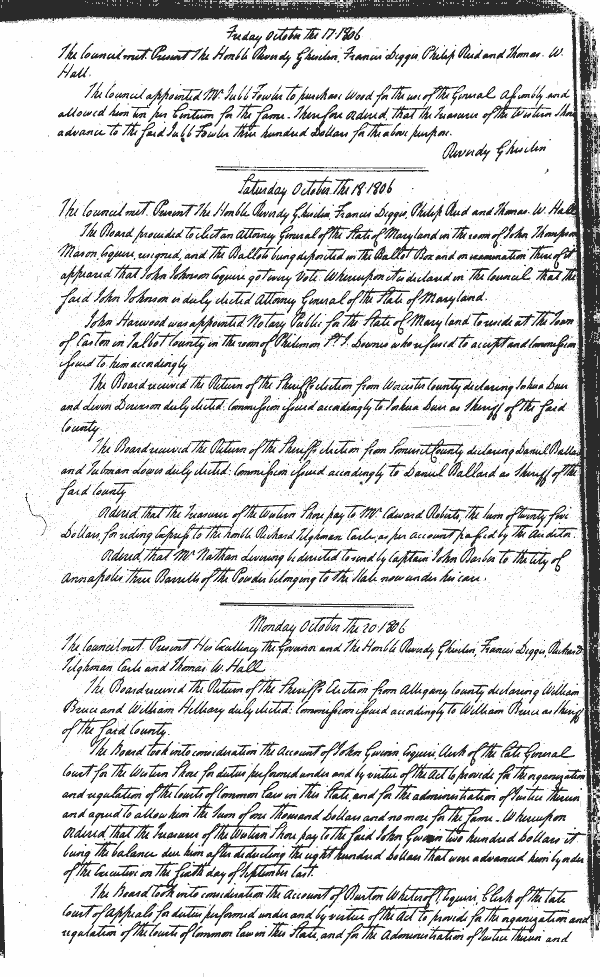 Friday October the 17 1806
The Council met. Present The Honble Reverdy Ghiselin, Francis Digges, Philip Reid and Thomas W.
Hall.
The Council appointed Mr. Jubb Fowler to purchase Wood for the use of the General Assembly and
allowed him ten per Centum for the same. Therefore ordered, that the Treasurer of the Western Shore
advance to the said Jubb Fowler three hundred Dollars for the above purpose.
Reverdy Ghiselin
Saturday October the 18 1806
The Council met. Present The Honble Reverdy Ghiselin, Francis Digges, Philip Reid and Thomas W. Hall
The Board proceeded to elect an Attorney General of the State of Maryland in the room of John Thompson
Mason Esquire, resigned, and the Ballots being deposited in the Ballot Box and on examination thereof it
appeared that John Johnson Esquire got every Vote. Whereupon it is declared in the Council that the
said John Johnson is duly elected Attorney General of the State of Maryland.
John Harwood was appointed Notary Public for the State of Maryland to reside at the Town
of Easton in Talbot County in the room of Philemon Downes who refused to accept and Commission
issued to him accordingly
The Board received the Return of the Sheriffs election from Worcester County declaring Joshua Duer
and Levin Dirickson duly elected: Commission issued accordingly to Joshua Duer as Sheriff of the said
County.
The Board received the Return of the Sheriffs election from Somerset County declaring Daniel Ballard
and Tubman Lowes duly elected: Commission issued accordingly to Daniel Ballard as Sheriff of the
said County
Ordered that the Treasurer of the Western Shore pay to Mr. Edward Roberts, the sum of twenty five
Dollars for riding Express to the honble Richard Tilghman Earle, as per account passed by the Auditor.
Ordered, that Mr. Nathan Levering be directed to send by Captain John Barber to the City of
Annapolis three Barrells of the Powder belonging to the State now under his care.
Monday October the 20 1806
The Council met. Present His Excellency the Governor and The Honble Reverdy Ghiselin, Francis Digges, Richard
Tilghman Earle and Thomas W. Hall
The Board received the Return of the Sheriffs Election from Allegany County declaring William
Bruce and William Hilleary duly elected: Commission issued accordingly to William Bruce as Sheriff
of the said County.
The Board took into consideration the Account of John Gwinn Esquire, Clerk of the late General
Court for the Western Shore for duties performed under and by virtue of the Act to provide for the organization
and regulation of the Courts of Common law in this State, and for the administration of Justice therein
and agreed to allow him the sum of one thousand Dollars and no more for the same. Whereupon
Ordered that the Treasurer of the Western Shore pay to the said John Gwinn two hundred Dollars it
being the balance due him after deducting the eight hundred Dollars that were advanced him by order
of the Executive on the sixth day of September last.
The Board took into consideration the Account of Burton Whetcroft, Esquire, Clerk of the late
Court of Appeals for duties performed under and by virtue of the Act to provide for the organization and
regulation of the Courts of Common law in this State, and for the Administration of Justice therein and